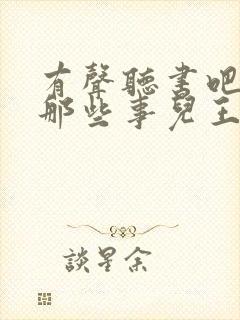 有聲聽書吧
那些事兒王
談星余